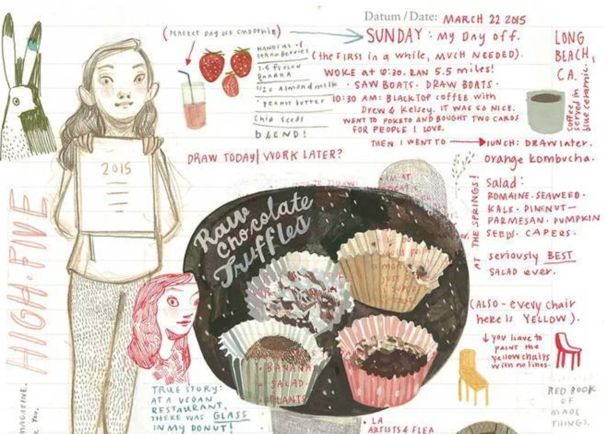 Datum / Date: MARCH 22 2015
SUNDAY: My Day off.
(THE FIRST IN A WHILE, MUCH NEEDED).
WOKE at 9:30. RAN 5.5 miles!
· SAW BOATS · DRAW BOATS ·
10:30 AM: BLACKTOP COFFEE WITH
Drew & Kelsey. IT WAS SO NICE.
WENT TO POKETO AND BOUGHT TWO CARDS
FOR PEOPLE I LOVE.
THEN I WENT TO
LUNCH: DRAWlater.
orange kombucha.
LONG
BEACH,
CA.
coffee
served in
blue ceramic.
(PERFECT DAY OFF SMOOTHIE)
HANDFUL of
strawberries
1.5 FROZEN
BANANA
1/2 c Almond milk
peanut butter
Chia seeds
bLEND!
DRAW TODAY/WORK LATER?
2015
HIGH-FIVE
Raw
Chocolate
Truffles
AT THE SPRINGS!
Salad:
ROMAINE·SEAWEED·
KALE· PINENUT—
PARMESAN·PUMPKIN
SEEDS· CAPERS.
seriously BEST
SALAD ever.
(ALSO - every chair
here is YELLOW).
↓ you have to
PAINT the
yellow chairs
with no lines.
RED BOOK
OF
MADE
THINGS.
TRUE STORY:
AT A VEGAN
RESTAURANT,
THERE WAS GLASS
IN MY DONUT!
· BANANA
· SALAD
· LA
ARTISTS & FLEA
MAGAZINE.
You,